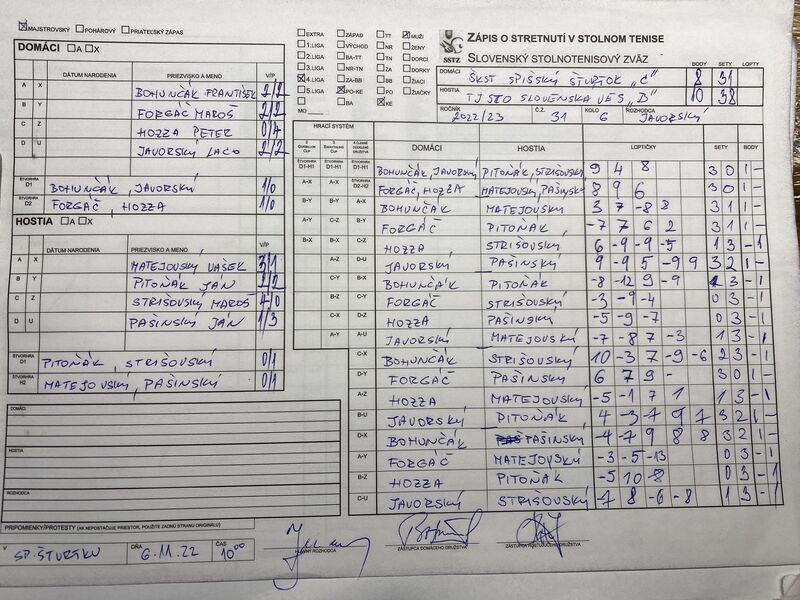 MAJSTROVSKÝ POHÁROVÝ PRIATEĽSKÝ ZÁPAS
DOMÁCI A X
DÁTUM NARODENIA PRIEZVISKO A MENO V/P
A X BOHUNČÁK FRANTIŠEK 2/2
B Y FORGÁČ MAROŠ 2/2
C Z HOZZA PETER 0/4
D U JAVORSKÝ LACO 2/2
ŠTVORHRA D1 BOHUNČÁK, JAVORSKÝ 1/0
ŠTVORHRA D2 FORGÁČ, HOZZA 1/0
HOSTIA A X
DÁTUM NARODENIA PRIEZVISKO A MENO V/P
A X MATEJOVSKÝ VAŠEK 3/1
B Y PITOŇÁK JÁN 2/2
C Z STRIŠOVSKÝ MAROŠ 4/0
D U PAŠINSKÝ JÁN 1/3
ŠTVORHRA D1 PITOŇÁK, STRIŠOVSKÝ 0/1
ŠTVORHRA H2 MATEJOVSKÝ, PAŠINSKÝ 0/1
DOMÁCI
HOSTIA
ROZHODCA
PRIPOMIENKY/PROTESTY (AK NEPOSTAČUJE PRIESTOR, POUŽITE ZADNÚ STRANU ORIGINÁLU)
V SP. ŠTVRTKU DŇA 6.11.22 ČAS 1000
EXTRA ZÁPAD TT MUŽI
1.LIGA VÝCHOD NR ŽENY
2.LIGA BA-TT TN DORCI
3.LIGA NR-TN ZA DORKY
4.LIGA ZA-BB BB ŽIACI
5.LIGA PO-KE PO ŽIAČKY
BA KE
MO
ZÁPIS O STRETNUTÍ V STOLNOM TENISE
SSTZ SLOVENSKÝ STOLNOTENISOVÝ ZVÄZ
BODY SETY LOPTY
DOMÁCI ŠKST SPIŠSKÝ ŠTVRTOK "C" 8 31
HOSTIA TJ STO SLOVENSKÁ VES "B" 10 38
ROČNÍK 2022/23 Č.Z. 31 KOLO 6 ROZHODCA JAVORSKÝ
HRACÍ SYSTÉM
DOMÁCI HOSTIA LOPTIČKY SETY BODY
D1-H1 D1-H1 D1-H1 BOHUNČÁK, JAVORSKÝ PITOŇÁK, STRIŠOVSKÝ 9 4 8 3 0 1 -
A-X A-X D2-H2 FORGÁČ, HOZZA MATEJOVSKÝ, PAŠINSKÝ 8 9 6 3 0 1 -
B-Y B-Y A-X BOHUNČÁK MATEJOVSKÝ 3 7 -8 8 3 1 1 -
A-Y C-Z B-Y FORGÁČ PITOŇÁK -7 7 6 2 3 1 1 -
B-X B-X C-Z HOZZA STRIŠOVSKÝ 6 -9 -9 -5 1 3 - 1
A-Z D-U JAVORSKÝ PAŠINSKÝ 9 -9 5 -9 9 3 2 1 -
C-Y B-X BOHUNČÁK PITOŇÁK -8 -12 9 -9 1 3 - 1
B-Z C-Y FORGÁČ STRIŠOVSKÝ -3 -9 -4 0 3 - 1
C-X D-Z HOZZA PAŠINSKÝ -5 -9 -7 0 3 - 1
A-Y A-U JAVORSKÝ MATEJOVSKÝ -7 -8 7 -3 1 3 - 1
C-X BOHUNČÁK STRIŠOVSKÝ 10 -3 7 -9 -6 2 3 - 1
D-Y FORGÁČ PAŠINSKÝ 6 7 9 3 0 1 -
A-Z HOZZA MATEJOVSKÝ 1 3 - 1
B-U JAVORSKÝ PITOŇÁK 4 -3 -7 9 7 3 2 1 -
D-X BOHUNČÁK PAŠINSKÝ -4 -7 9 8 8 3 2 1 -
A-Y FORGÁČ MATEJOVSKÝ -3 -5 -13 0 3 - 1
B-Z HOZZA PITOŇÁK 0 3 - 1
C-U JAVORSKÝ STRIŠOVSKÝ -7 8 -6 -8 1 3 - 1
HLAVNÝ ROZHODCA ZÁSTUPCA DOMÁCEHO DRUŽSTVA ZÁSTUPCA HOSŤUJÚCEHO DRUŽSTVA